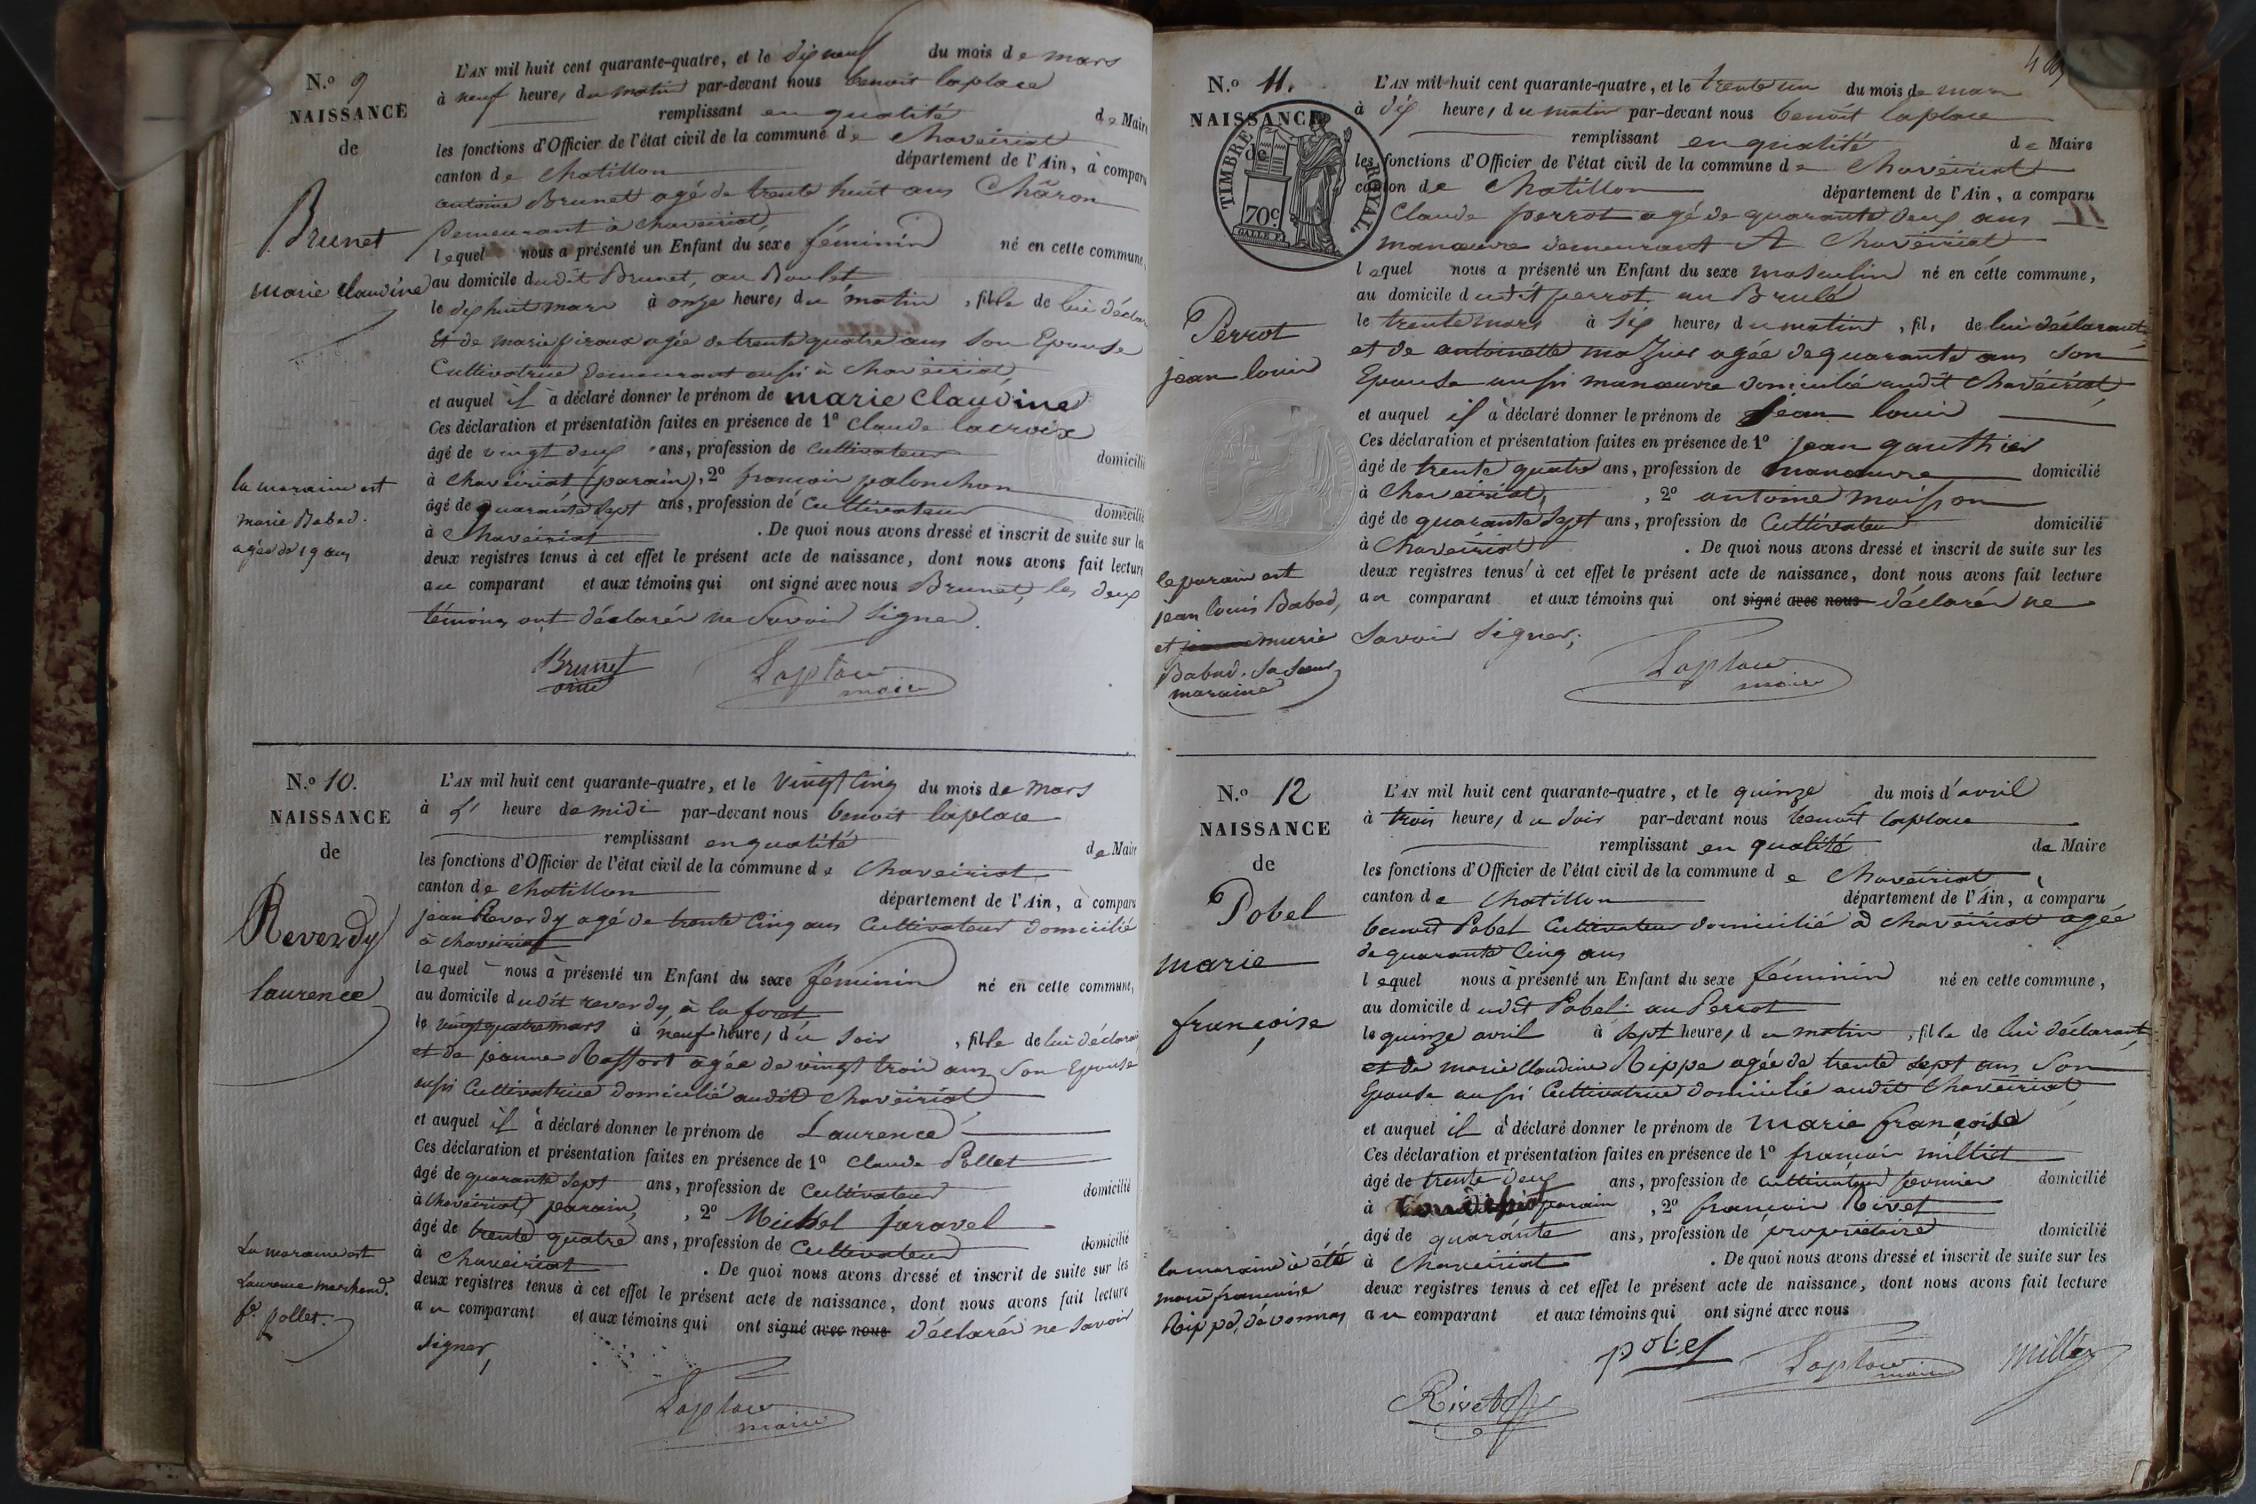 N.º 9
NAISSANCE
de
Brunet
marie Claudine
la maraine est
marie Babad.
agée de 19 ans
L'AN mil huit cent quarante-quatre, et le dix neuf du mois de mars
à neuf heures du matin par-devant nous benoit laplace
remplissant en qualité de Maire
les fonctions d'Officier de l'état civil de la commune de Chaveiriat
canton de Chatillon département de l'Ain, à comparu
antoine Brunet agé de trente huit ans Châron
demeurant à chaveiriat
lequel nous a présenté un Enfant du sexe féminin né en cette commune,
au domicile dudit Brunet, au Boulet
le dix huit mars à onze heures du matin, fille de lui déclar
et de marie piroux agée de trente quatre ans son Epouse
Cultivatrice demeurant aussi à chaveiriat,
et auquel il à déclaré donner le prénom de marie Claudine
Ces déclaration et présentation faites en présence de 1º Claude lacroix
âgé de vingt deux ans, profession de Cultivateur domicilié
à Chaveiriat (parain), 2º francois palonchon
âgé de quarante sept ans, profession de Cultivateur domicilié
à Chaveiriat. De quoi nous avons dressé et inscrit de suite sur les
deux registres tenus à cet effet le présent acte de naissance, dont nous avons fait lecture
au comparant et aux témoins qui ont signé avec nous Brunet, les deux
témoins ont déclarés ne Savoir signer.
Brunet
Laplace
maire
N.º 10.
NAISSANCE
de
Reverdy
laurence
La maraine est
Laurence marchand.
fe. pollet.
L'AN mil huit cent quarante-quatre, et le Vingt Cinq du mois de mars
à L' heure de midi par-devant nous benoit laplace
remplissant en qualité de Maire
les fonctions d'Officier de l'état civil de la commune de Chaveiriat
canton de Chatillon département de l'Ain, à comparu
jean Reverdy agé de trente Cinq ans Cultivateur domicilié
à Chaveiriat
lequel nous à présenté un Enfant du sexe féminin né en cette commune,
au domicile dudit reverdy, à la foret
le vingt quatre mars à neuf heures du soir, fille de lui déclarant
et de jeanne Raffort agée de vingt trois ans Son Epouse
aussi Cultivatrice domicilié audit Chaveiriat
et auquel il à déclaré donner le prénom de Laurence
Ces déclaration et présentation faites en présence de 1º Claude Pollet
âgé de quarante sept ans, profession de Cultivateur domicilié
à Chaveiriat, parain, 2º Michel faravel
âgé de trente quatre ans, profession de Cultivateur domicilié
à Chaveiriat. De quoi nous avons dressé et inscrit de suite sur les
deux registres tenus à cet effet le présent acte de naissance, dont nous avons fait lecture
au comparant et aux témoins qui ont signé avec nous déclarés ne savoir
signer,
Laplace
maire
N.º 11.
NAISSANCE
de
TIMBRE ROYAL
70c
Perrot
jean louis
le parain est
jean louis Babad,
et jeanne marie
Babad. Sa Sœur
maraine
L'AN mil huit cent quarante-quatre, et le trente un du mois de mars
à dix heures du matin par-devant nous benoit laplace
remplissant en qualité de Maire
les fonctions d'Officier de l'état civil de la commune de Chaveiriat
canton de Chatillon département de l'Ain, a comparu
Claude perrot agé de quarante deux ans
manœuvre demeurant A Chaveiriat
lequel nous a présenté un Enfant du sexe masculin né en cette commune,
au domicile dudit perrot au Brulé
le trente mars à six heures du matin, fils de lui déclarant
et de antoinette mazuer agée de quarante ans Son
Epouse aussi manœuvre domicilié audit Chaveiriat
et auquel il à déclaré donner le prénom de jean louis
Ces déclaration et présentation faites en présence de 1º jean gauthier
âgé de trente quatre ans, profession de manœuvre domicilié
à Chaveiriat, 2º antoine moisson
âgé de quarante sept ans, profession de Cultivateur domicilié
à Chaveiriat. De quoi nous avons dressé et inscrit de suite sur les
deux registres tenus à cet effet le présent acte de naissance, dont nous avons fait lecture
au comparant et aux témoins qui ont signé avec nous déclarés ne
Savoir signer;
Laplace
maire
N.º 12
NAISSANCE
de
Pobel
marie
françoise
la maraine à été
marie francoise
Rippe, de vonnas
L'AN mil huit cent quarante-quatre, et le quinze du mois d'avril
à trois heures du soir par-devant nous benoit laplace
remplissant en qualité de Maire
les fonctions d'Officier de l'état civil de la commune de Chaveiriat,
canton de Chatillon département de l'Ain, à comparu
benoit Pobel Cultivateur domicilié à chaveiriat agée
de quarante Cinq ans
lequel nous à présenté un Enfant du sexe féminin né en cette commune,
au domicile dudit Pobel au Perrot
le quinze avril à sept heures du matin, fille de lui déclarant,
et de marie Claudine Rippe agée de trente sept ans Son
Epouse aussi Cultivatrice domicilié audit Chaveiriat
et auquel il à déclaré donner le prénom de marie françoise
Ces déclaration et présentation faites en présence de 1º francois milliet
âgé de trente deux ans, profession de cultivateur fermier domicilié
à parain, 2º francois Rivet
âgé de quarante ans, profession de propriétaire domicilié
à Chaveiriat. De quoi nous avons dressé et inscrit de suite sur les
deux registres tenus à cet effet le présent acte de naissance, dont nous avons fait lecture
au comparant et aux témoins qui ont signé avec nous
pobel
Laplace
maire
Rivet